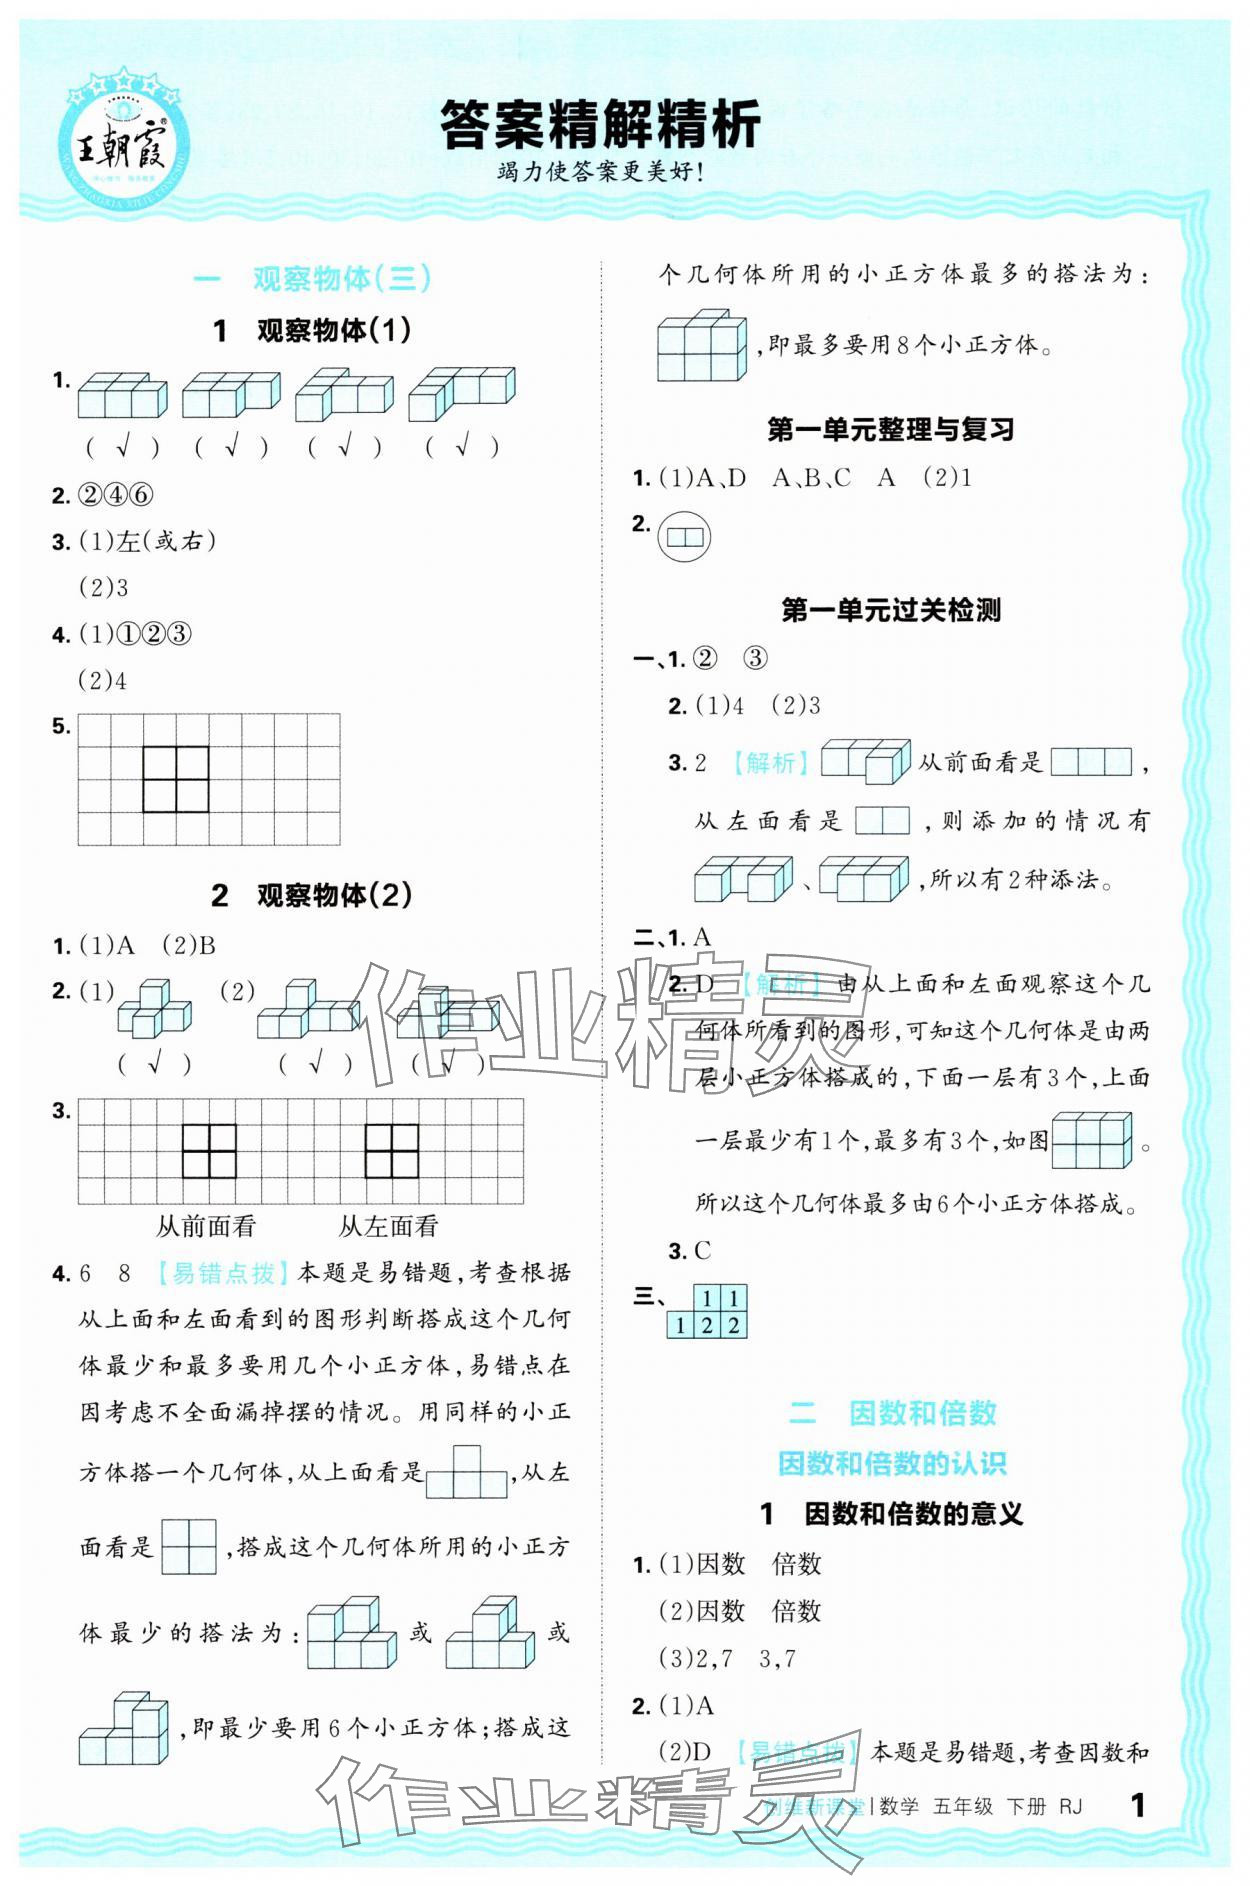 王朝霞®
WANG ZHAOXIA XILIE CONGSHU
答案精解精析
竭力使答案更美好!
一 观察物体(三)
1 观察物体(1)
1.
( √ ) ( √ ) ( √ ) ( √ )
2. ②④⑥
3. (1)左(或右)
(2)3
4. (1)①②③
(2)4
5.
2 观察物体(2)
1. (1)A (2)B
2. (1) (2)
( √ ) ( √ ) ( √ )
3.
从前面看 从左面看
4. 6 8 【易错点拨】本题是易错题,考查根据
从上面和左面看到的图形判断搭成这个几何
体最少和最多要用几个小正方体,易错点在
因考虑不全面漏掉摆的情况。用同样的小正
方体搭一个几何体,从上面看是 ,从左
面看是 ,搭成这个几何体所用的小正方
体最少的搭法为: 或 或
,即最少要用6个小正方体;搭成这
个几何体所用的小正方体最多的搭法为:
,即最多要用8个小正方体。
第一单元整理与复习
1. (1)A、D A、B、C A (2)1
2.
第一单元过关检测
一、1. ② ③
2. (1)4 (2)3
3. 2 【解析】 从前面看是 ,
从左面看是 ,则添加的情况有
、 ,所以有2种添法。
二、1. A
2. D 【解析】 由从上面和左面观察这个几
何体所看到的图形,可知这个几何体是由两
层小正方体搭成的,下面一层有3个,上面
一层最少有1个,最多有3个,如图 。
所以这个几何体最多由6个小正方体搭成。
3. C
三、 1 1
1 2 2
二 因数和倍数
因数和倍数的认识
1 因数和倍数的意义
1. (1)因数 倍数
(2)因数 倍数
(3)2,7 3,7
2. (1)A
(2)D 【易错点拨】本题是易错题,考查因数和
创维新课堂|数学 五年级 下册 RJ 1
作业精灵
作业精灵